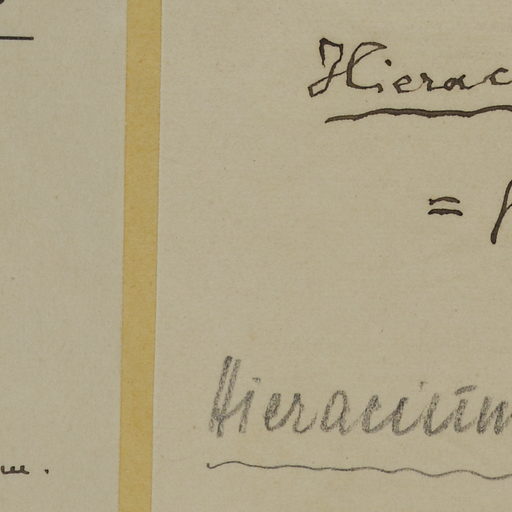 Hierac
=
Hieracium